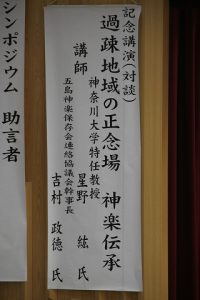 記念講演（対談）
過疎地域の正念場　神楽伝承
講師　神奈川大学特任教授
星野　紘　氏
五島神楽保存会連絡協議会幹事長
吉村　政徳　氏
シンポジウム　助言者